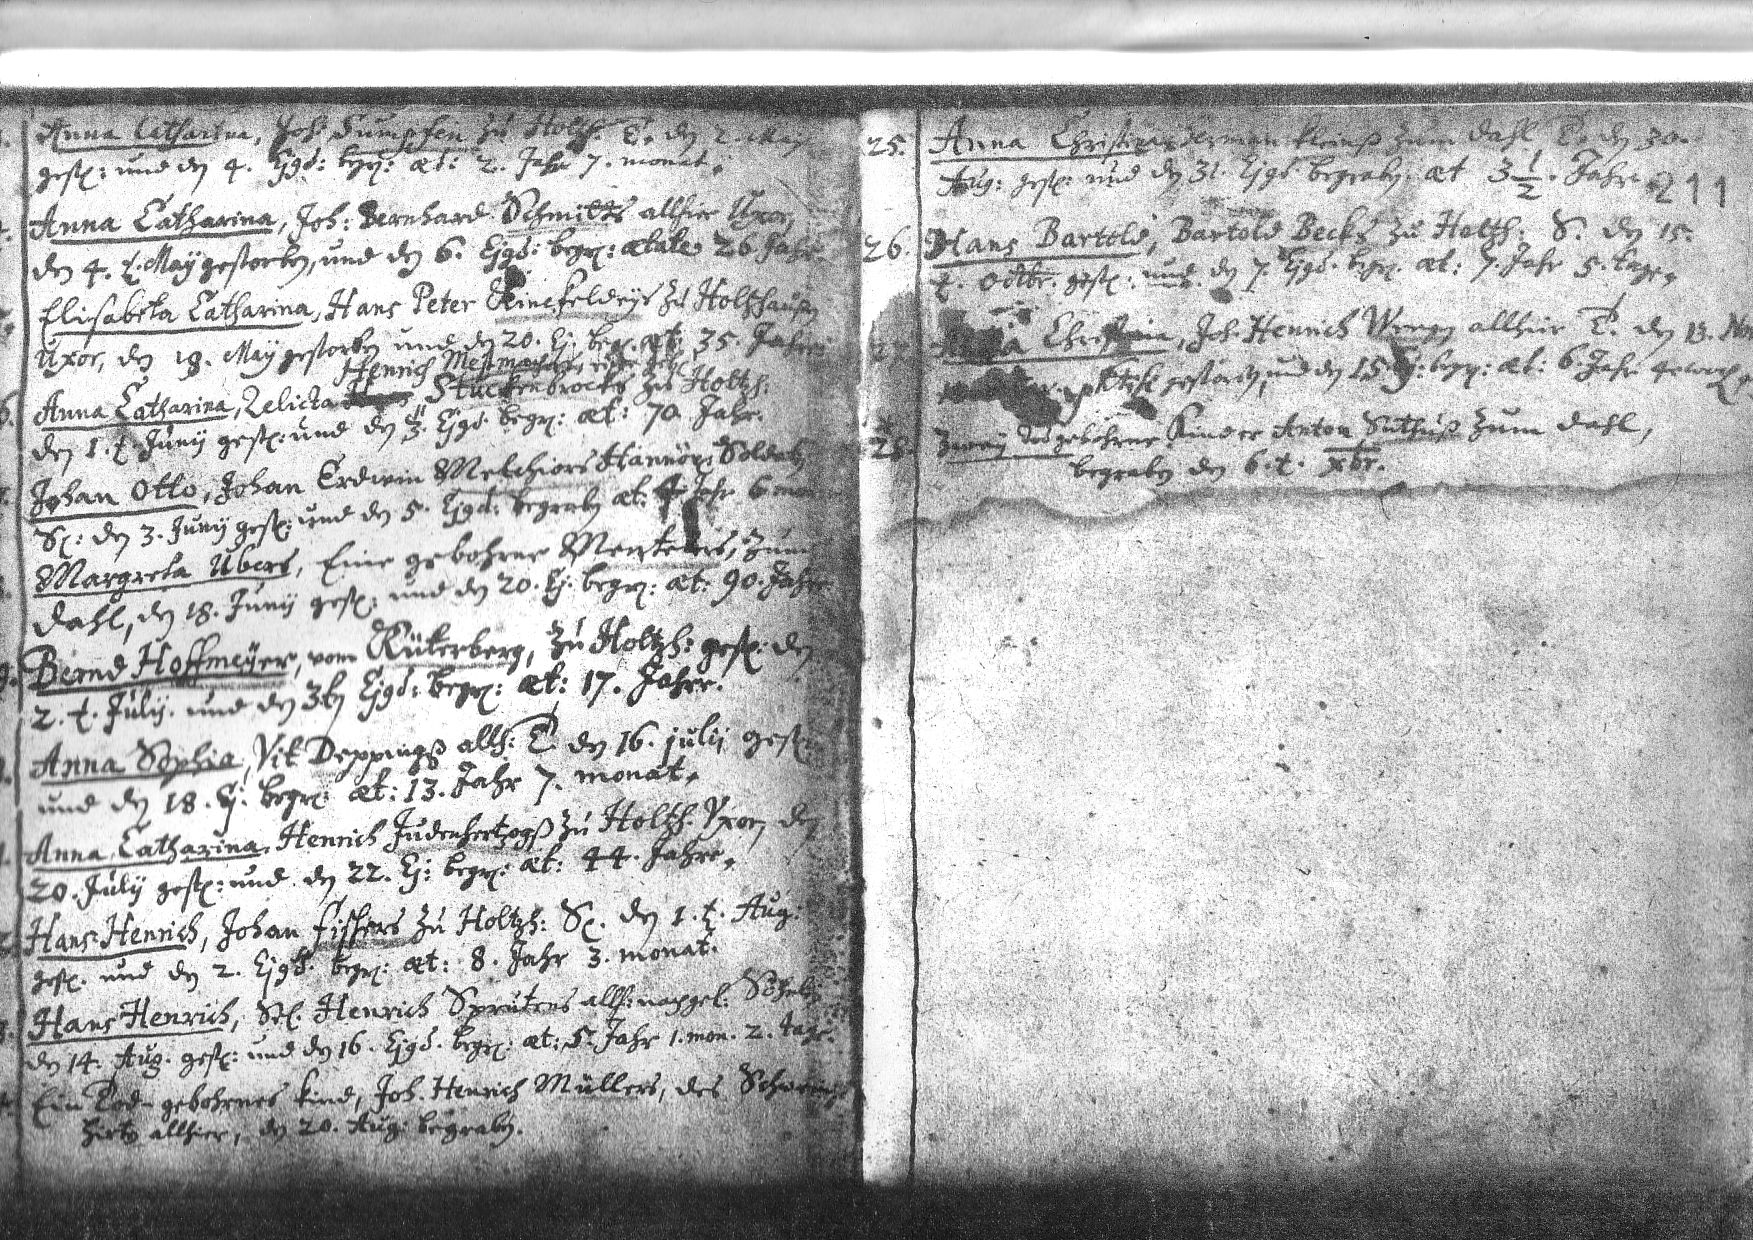 Anna Catharina, Joh. Dumpfen zu Holtzh. T. den 2. Maij
gest: und den 4. Ejgd: begr: æt: 2. Jahr 7. monat.
Anna Catharina, Joh: Bernhard Schmitts allhie Uxor,
den 4. t. Maÿ gestorben, und den 6. Ejgd: begr: ætate 26 Jahr
Elisabeta Catharina, Hans Peter Rinefeldeÿs zu Holtzhausen
Uxor, den 18. Maÿ gestorben und den 20. Ej. begr. æt. 35. Jahre
Henrich Mestmachers
Anna Catharina, Relicta Stuckenbrocks zu Holtzh:
den 1. t. Junij gest: und den 3. Ejgd. begr: æt: 70. Jahr.
Johan Otto, Johan Erdwin Melchiors Hannöv: Soldaten
S: den 3. Junij gest: und den 5. Ejgd: begraben æt: 4 Jahr 6 mon
Margreta Ubers, Eine gebohrne Menteters, Zum
Dahl, den 18. Junij gest: und den 20. Ej: begr: æt: 90. Jahre
Bernd Hoffmeÿer, vom Rüterberg, zu Holtzh: gest: den
2. t. Julij. und den 3ten Ejgd: begr: æt: 17. Jahre.
Anna Sophia, Vit Deppings allh: T. den 16. julij gest:
und den 18. Ej: begr: æt: 13. Jahr 7. monat.
Anna Catharina, Henrich Judenhertzogß zu Holtzh. Uxor, den
20. Julij gest: und den 22. Ej: begr: æt: 44. Jahre.
Hans Henrich, Johan Fissers zu Holtzh: S. den 1. t. Aug:
gest. und den 2. Ejgd. begr: æt: 8. Jahr 3. monat.
Hans Henrich, Sel. Henrich Sprutens allh: nachgel. Söhnlein
den 14. Aug. gest: und den 16. Ejgd. begr: æt: 5. Jahr 1. mon. 2. tage.
Ein Tod-gebohrnes Kind, Joh. Henrich Müllers, des Schweine
hirten allhier, den 20. Aug: begraben.
25. Anna Christina, Herman Kleinß zum Dahl, T. den 30.
Aug: gest: und den 31. Ejgd. begraben. æt 3 1/2. Jahr
211
26. Hans Bartold, Bartold Becks zu Holtzh: S. den 15.
t. Octbr. gest: und den 7. Ejgd. begr. æt: 7. Jahr 5. tage.
27. Christin, Joh. Henrich allhier T. den 13. Nov
gestorben, und den 15. Ej: begr: æt: 6. Jahr 4
28. Zweÿ tod gebohrne Kinder Anton Suthuß zum Dahl,
begraben den 6. t. Xbr.